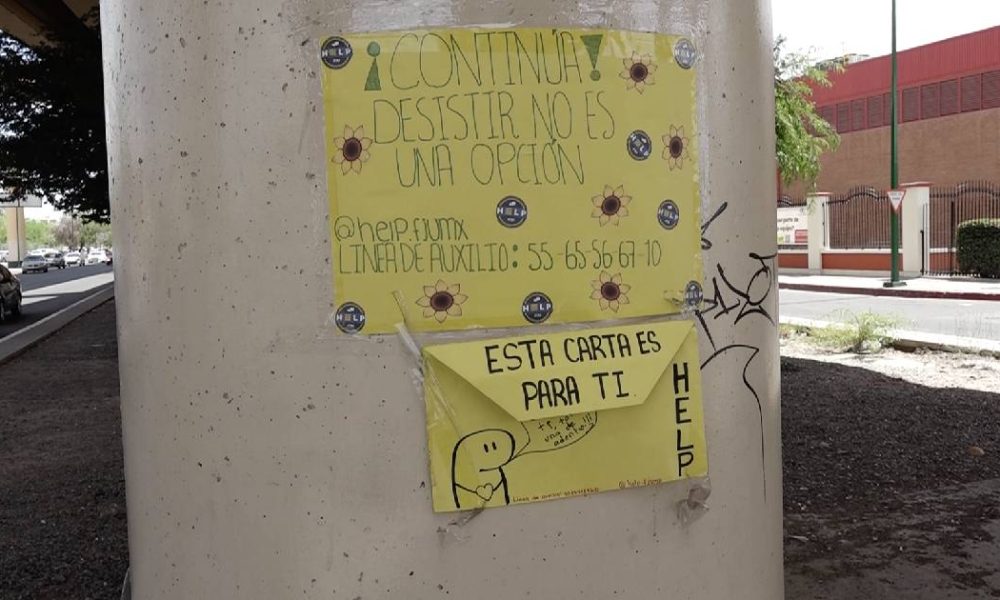 ¡CONTINÚA!
DESISTIR NO ES
UNA OPCIÓN
@help.fjumx
LINEA DE AUXILIO: 55-65-56 67-10
ESTA CARTA ES
PARA TI
HELP
HELP
HELP
HELP
HELP
HELP